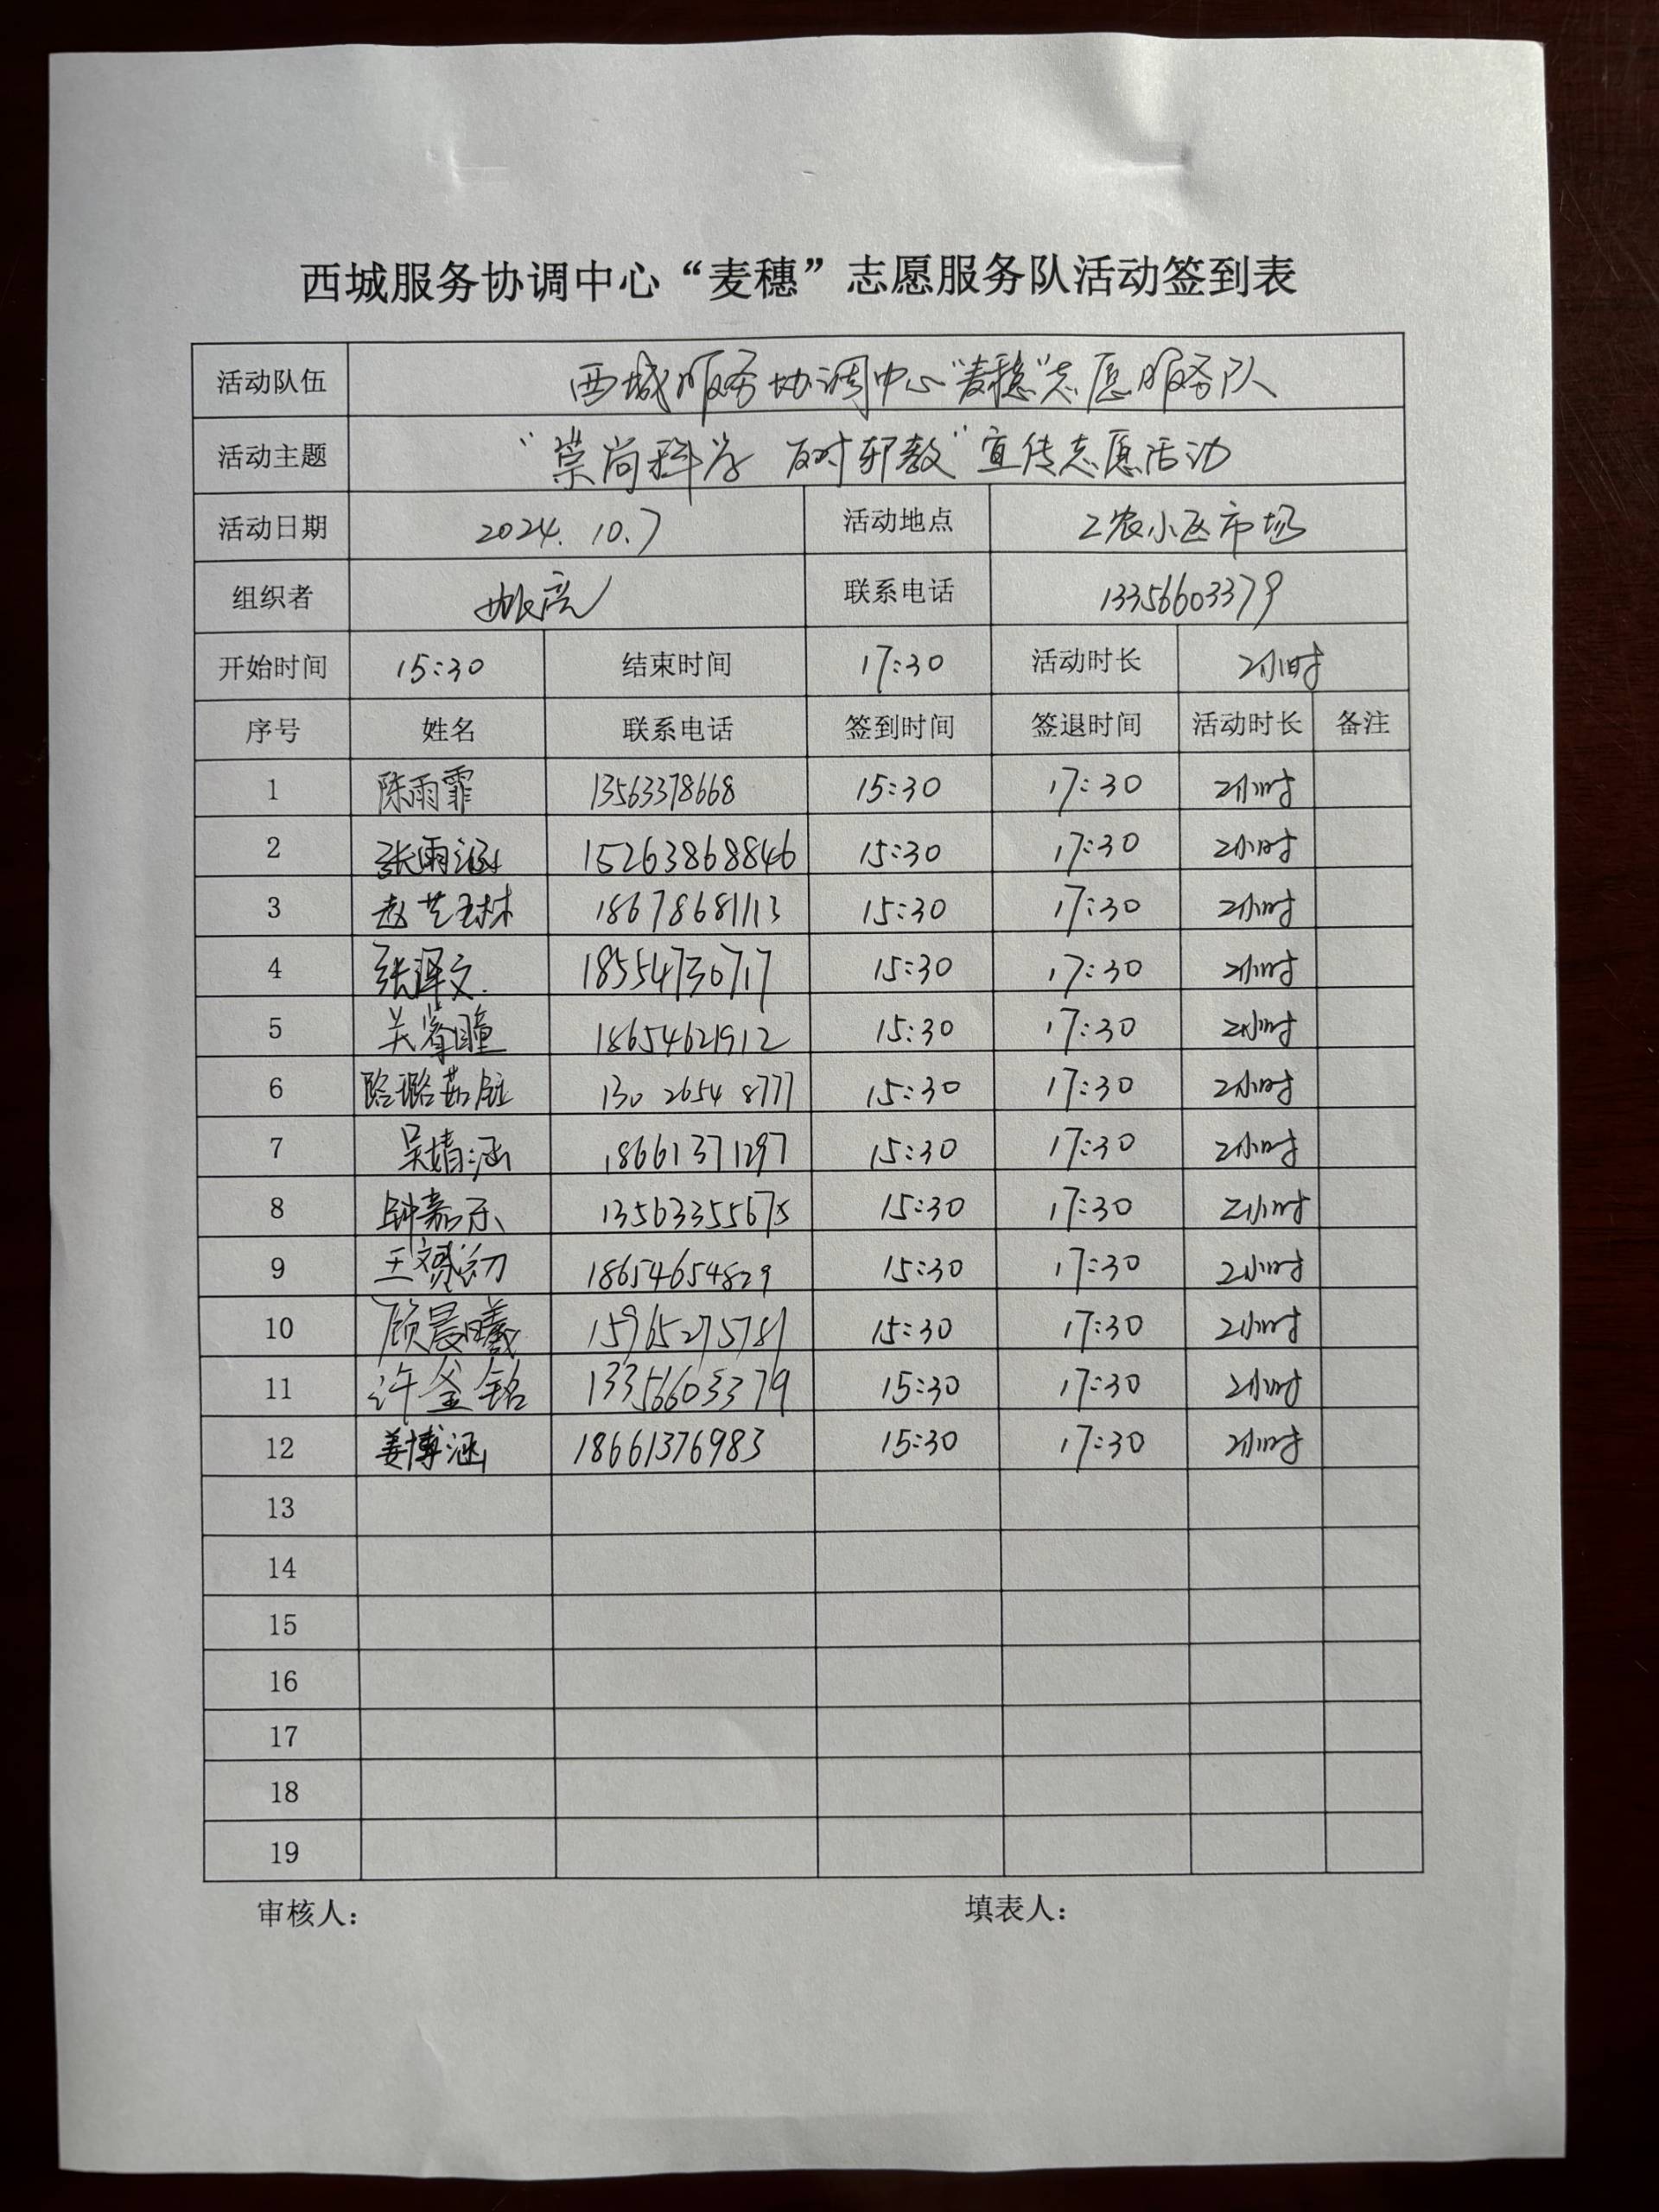 西城服务协调中心“麦穗”志愿服务队活动签到表
活动队伍 西城服务协调中心“麦穗”志愿服务队
活动主题 “崇尚科学 反对邪教”宣传志愿活动
活动日期 2024.10.7 活动地点 工农小区市场
组织者 联系电话 13356603379
开始时间 15:30 结束时间 17:30 活动时长 2小时
序号 姓名 联系电话 签到时间 签退时间 活动时长 备注
1 陈雨霏 13563378668 15:30 17:30 2小时
2 张雨涵 15263868846 15:30 17:30 2小时
3 赵艺琳 18678681113 15:30 17:30 2小时
4 张泽文 18554730717 15:30 17:30 2小时
5 关睿瞳 18654621912 15:30 17:30 2小时
6 130 2654 8777 15:30 17:30 2小时
7 吴婧涵 18661371297 15:30 17:30 2小时
8 钟嘉乐 13563355675 15:30 17:30 2小时
9 18654654829 15:30 17:30 2小时
10 顾晨曦 15965275781 15:30 17:30 2小时
11 许釜铭 13356603379 15:30 17:30 2小时
12 姜博涵 18661376983 15:30 17:30 2小时
13
14
15
16
17
18
19
审核人： 填表人：